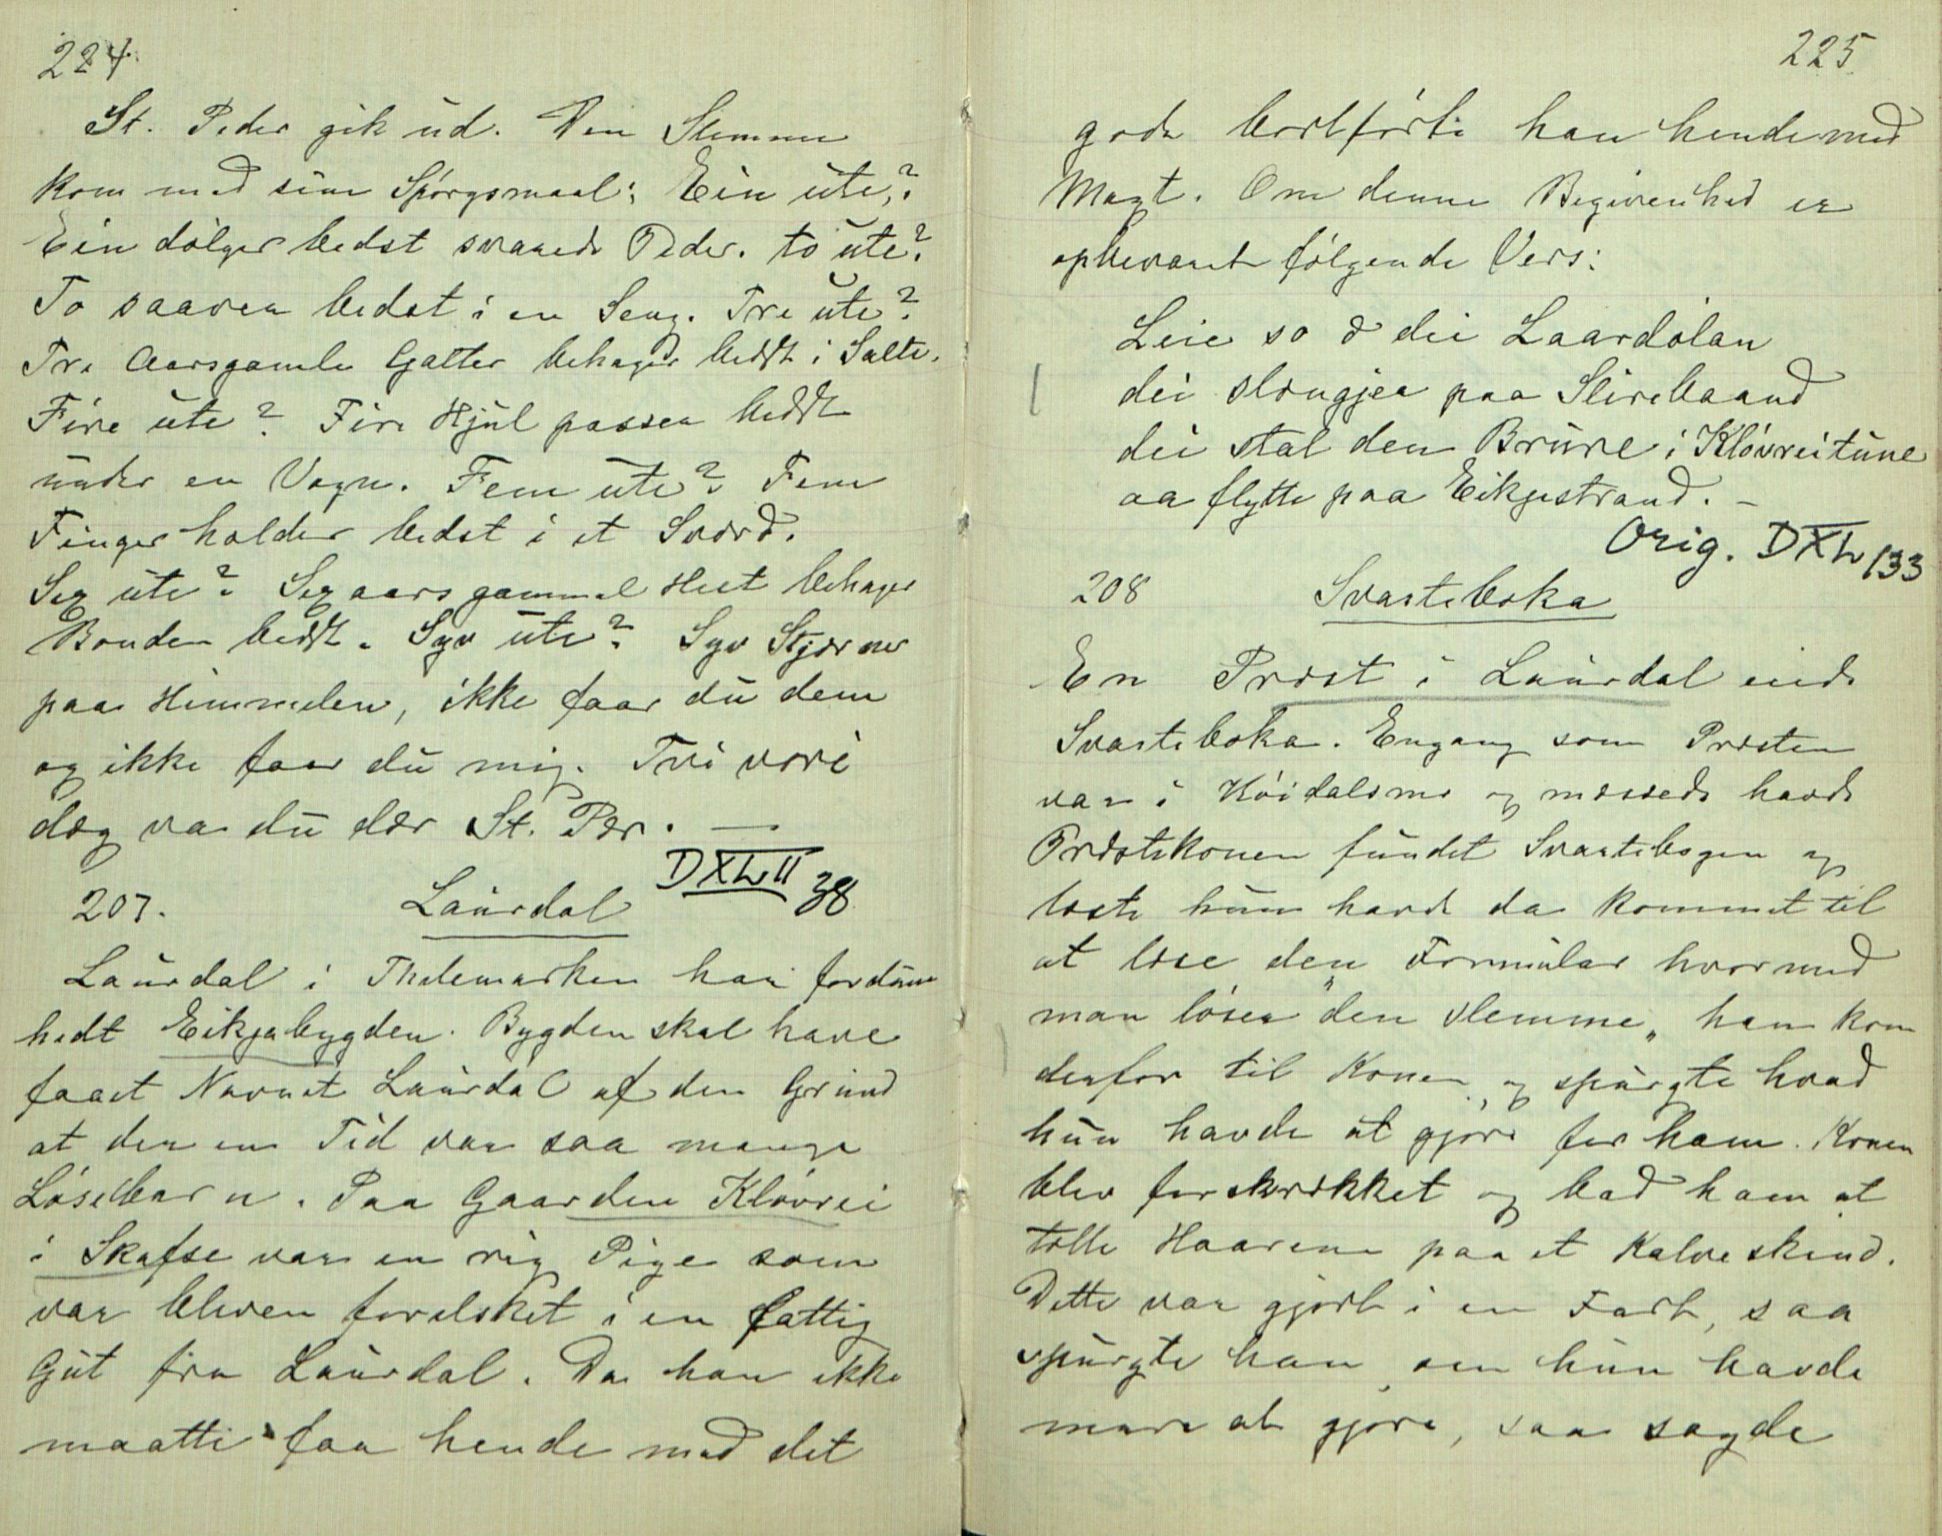 224.
St. Peder gik ud. Den Slemme
kom med sine Spórgsmaal: Ein ute?
Ein dólger bedst svarede Peder. to ute?
To saarea bedst i en Seng. Tre ute?
Tre Aarsgamle Galter behager bedst i Salte.
Fire ute? Fire Hjul passer bedst
under en Vogn. Fem ute? Fem
Finger holder bedst i et Sværd.
Sex ute? Sex aars gammel Hest behager
Bonden bedst. Syv ute? Syv Stjerner
paa Himmelen, ikke faar du dem
og ikke faar du mig. Tvi vori
dæg va du dær St. Pær. —
DXLII 38
207. Laurdal
Laurdal i Thelemarken har fordum
hedt Eikjabygden. Bygden skal have
faaet Navnet Laurdal af den Grund
at der en Tid var saa mange
Lóselbarn. Paa Gaarden Klóvrei
i Skafse var en rig Pige som
var bleven forelsket i en fattig
Gut fra Laurdal. Da han ikke
maatte faa hende med det
225
gode bortfórte han hende med
Magt. Om denne Begivenhed er
opbevaret fólgende Vers:
Leie so æ dei Laardólan
dei slengjer paa Slirebaand
dei stal den Brure i Klóvreitune
aa flytte paa Eikjestrand. —
Orig. DXL 133
208 Svarteboka
En Præst i Laurdal eiede
Svarteboka. Engang som Præsten
var i Hóidalsmo og messede havde
Præstekonen fundet Svartebogen og
læste hun havde da kommet til
at læse den Formular hvormed
man lóser "den slemme" han kom
derfor til Konen, og spurgte hvad
hun havde at gjóre for ham. Konen
blev forskrækket og bad ham at
tælle Haarene paa et Kalveskind.
Dette var gjort i en Fart, saa
spurgte han om hun havde
mere at gjóre, saa sagde